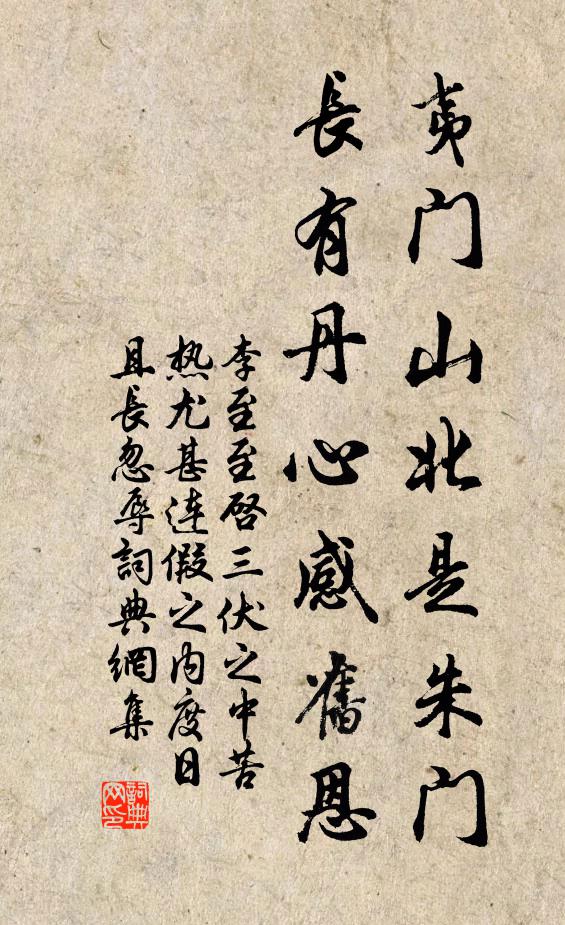 夷门山北是朱门
長有丹心感舊恩
李至至啓三伏之中苦
热尤甚连假之内度日
且長忽辱詞典網集
詞典
网印